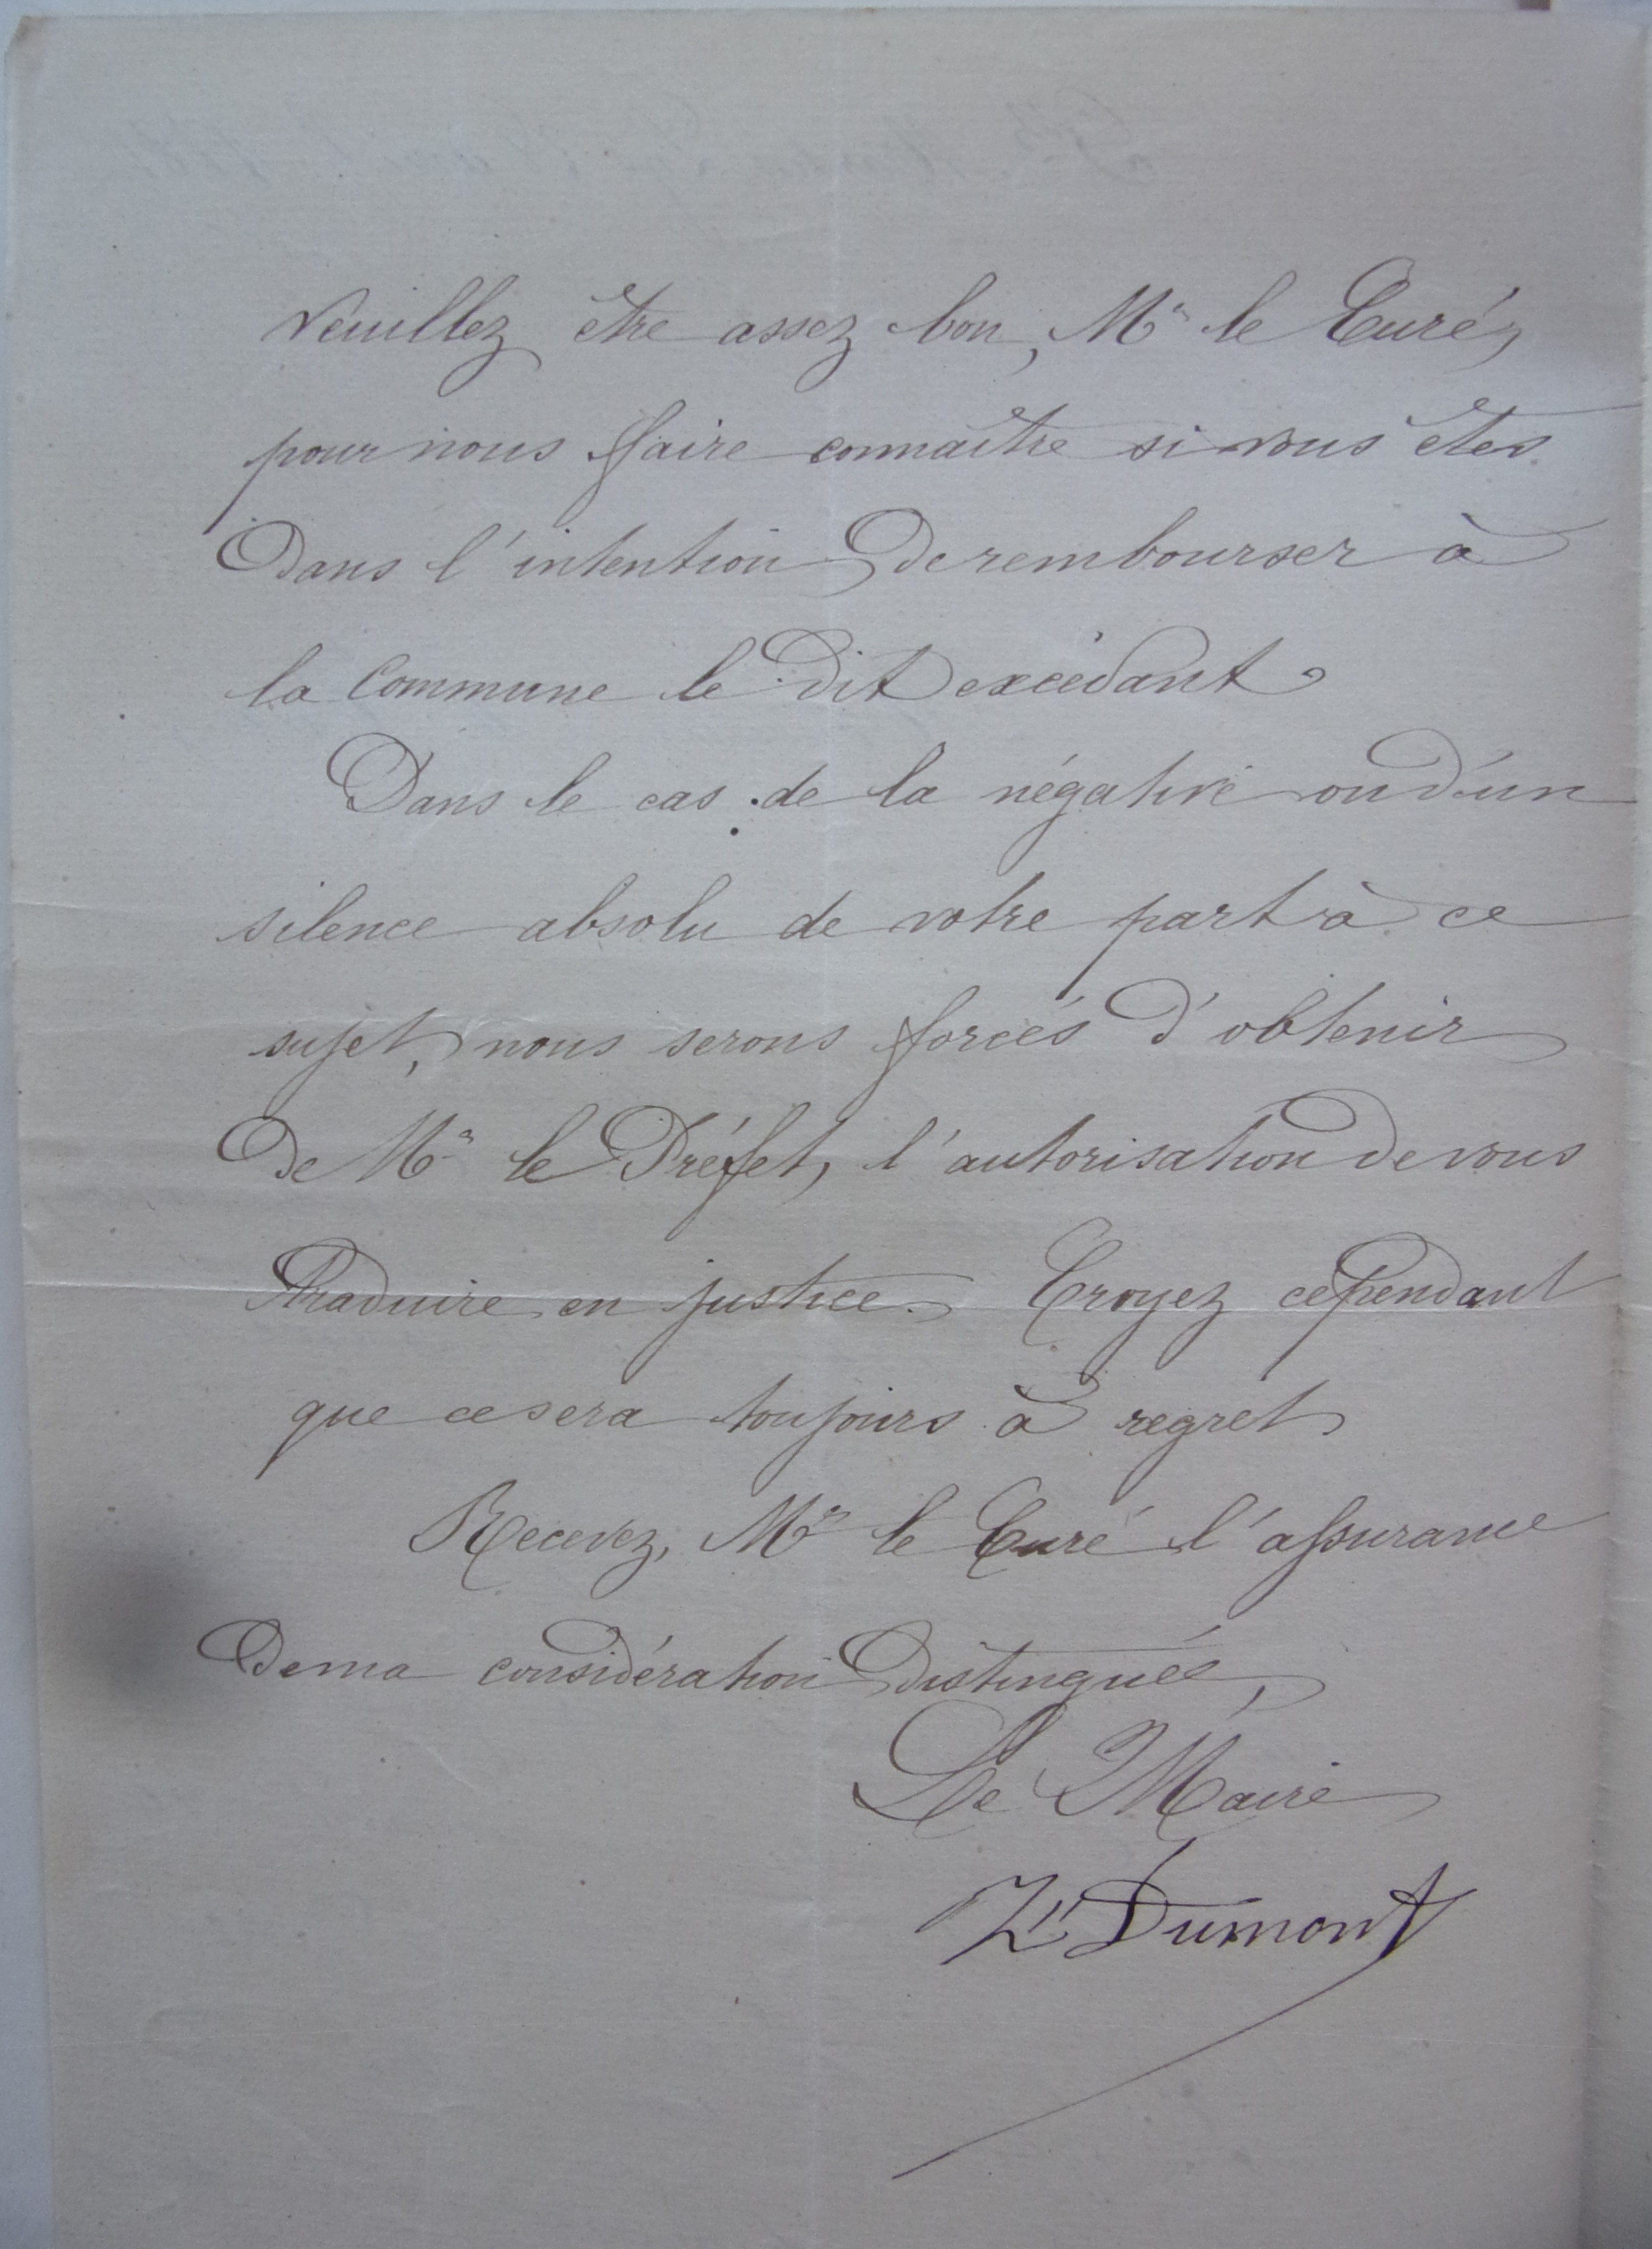 Veuillez être assez bon, Mr le Curé,
pour nous faire connaître si vous êtes
Dans l'intention De rembourser à
la Commune le Dit excédant.
Dans le cas de la négative ou d'un
silence absolu de votre part à ce
sujet, nous serons forcés d'obtenir
De Mr le Préfet, l'autorisation De vous
Traduire en justice. Croyez cependant
que ce sera toujours à regret
Recevez, Mr le Curé l'assurance
De ma considération Distinguée,
Le Maire
Dumont